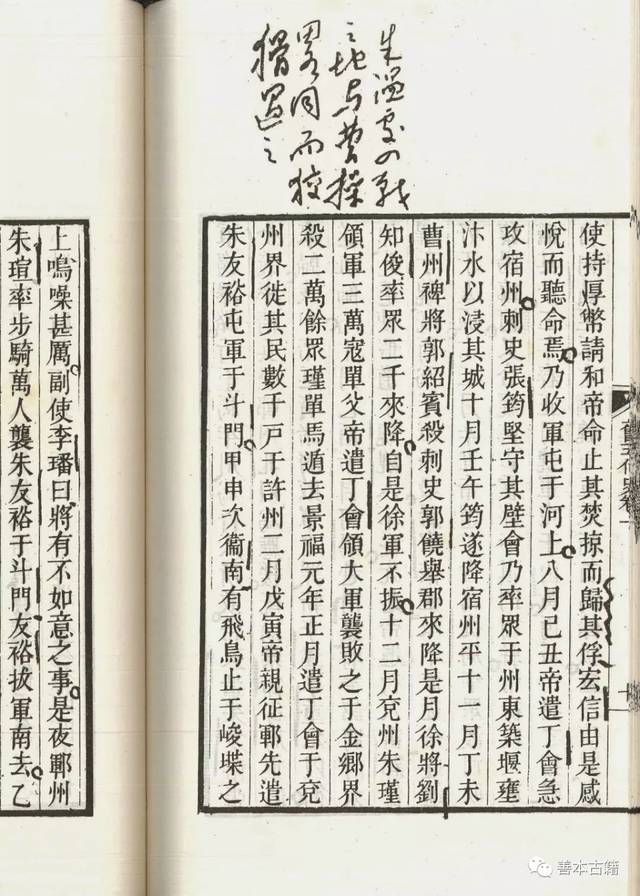 朱温处四战
之地与曹操
畧同而狡
猾過之
使持厚幣請和帝命止其焚掠而歸其俘宏信由是感
悅而聽命焉乃收軍屯于河上八月己丑帝遣丁會急
攻宿州刺史張筠堅守其壁會乃率眾于州東築堰壅
汴水以浸其城十月壬午筠遂降宿州平十一月丁未
曹州裨將郭紹賓殺刺史郭饒舉郡來降是月徐將劉
知俊率眾二千來降自是徐軍不振十二月兗州朱瑾
領軍三萬寇單父帝遣丁會領大軍襲敗之于金鄉界
殺二萬餘眾瑾單馬遁去景福元年正月遣丁會于兗
州界徙其民數千戸于許州二月戊寅帝親征鄆先遣
朱友裕屯軍于斗門甲申次衞南有飛鳥止于峻堞之
上鳴噪甚厲副使李璠曰將有不如意之事是夜鄆州
朱瑄率步騎萬人襲朱友裕于斗門友裕拔軍南去乙
善本古籍